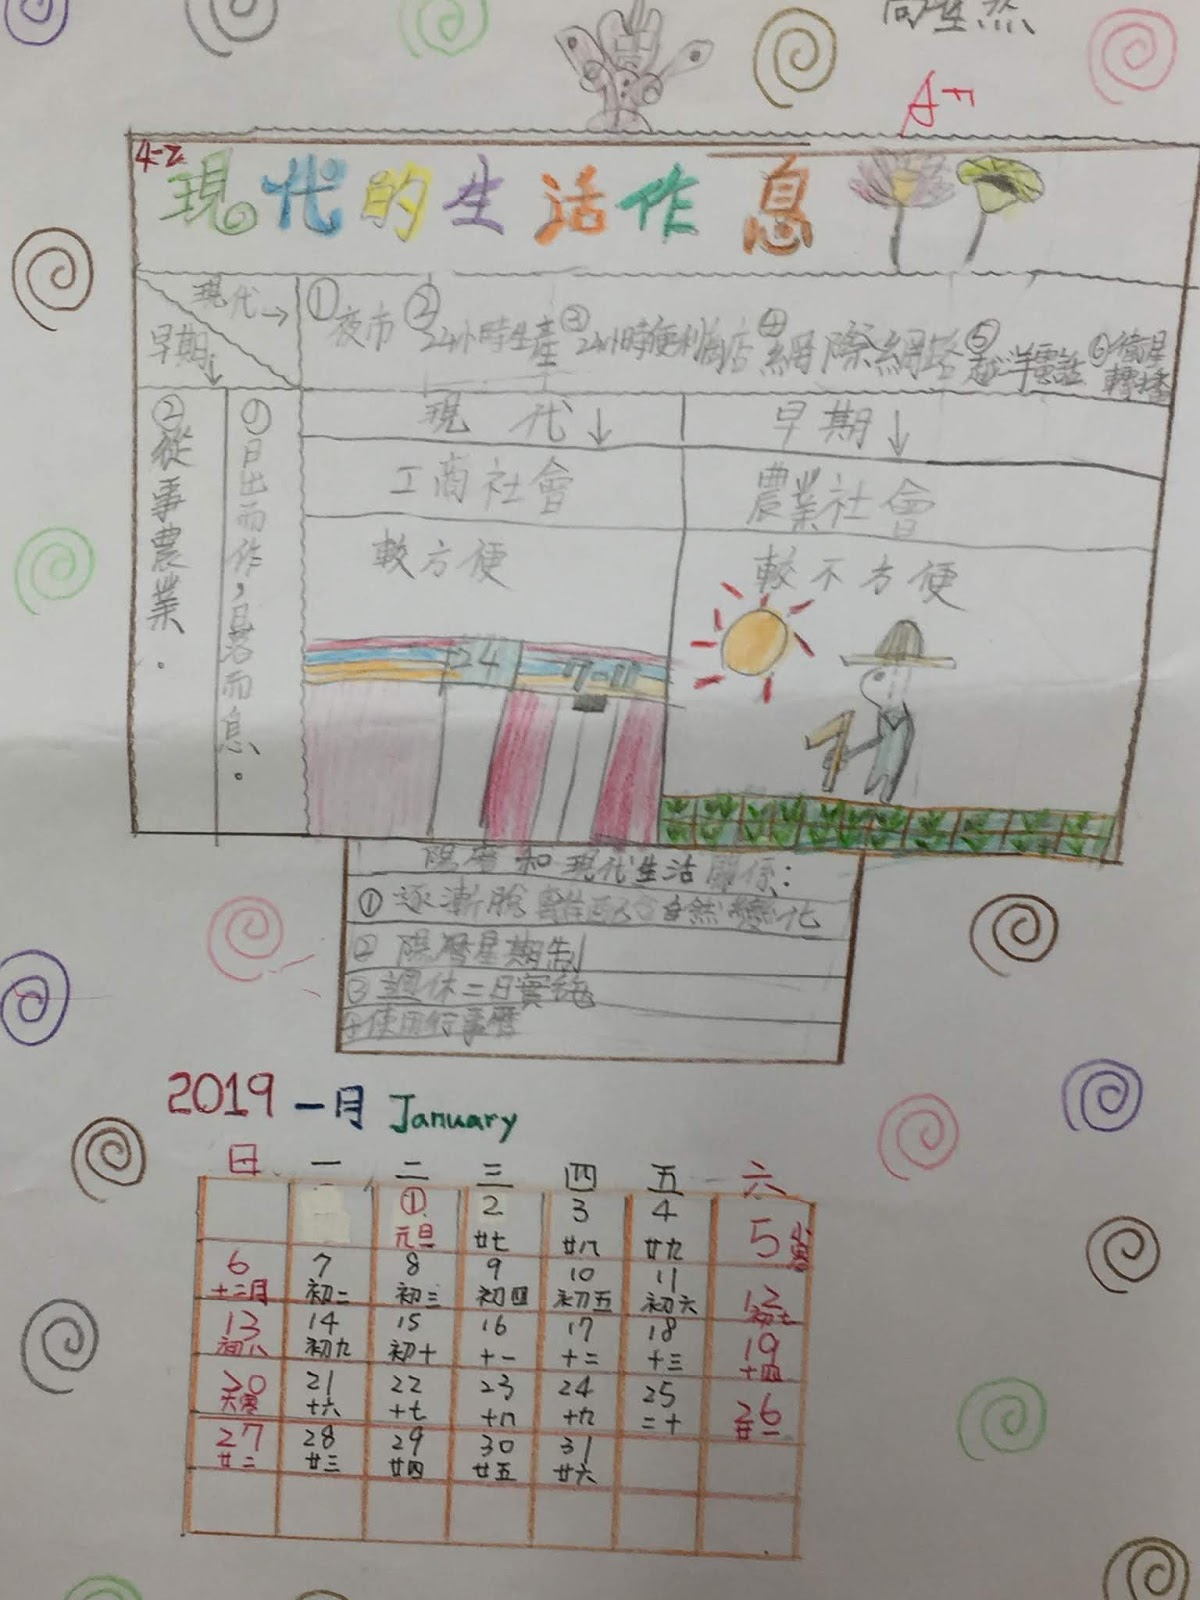 A+
4-2
現代的生活作息
現代→
早期↓
①夜市 ②24小時生產 ③24小時便利商店 ④網際網路 ⑤越洋電話 ⑥衛星轉播
①日出而作，日落而息。
②從事農業.
現代↓ 早期↓
工商社會 農業社會
較方便 較不方便
24 7-11
陽曆和現代生活關係:
①逐漸脫離配合自然變化
②陽曆星期制
③週休二日實施
④使用行事曆
2019 一月 January
日 一 二 三 四 五 六
① 2 3 4 5 小寒
元旦 廿七 廿八 廿九
6 7 8 9 10 11 12
十二月 初二 初三 初四 初五 初六 初七
13 14 15 16 17 18 19
初八 初九 初十 十一 十二 十三 十四
20 21 22 23 24 25 26
大寒 十六 十七 十八 十九 二十 廿一
27 28 29 30 31
廿二 廿三 廿四 廿五 廿六